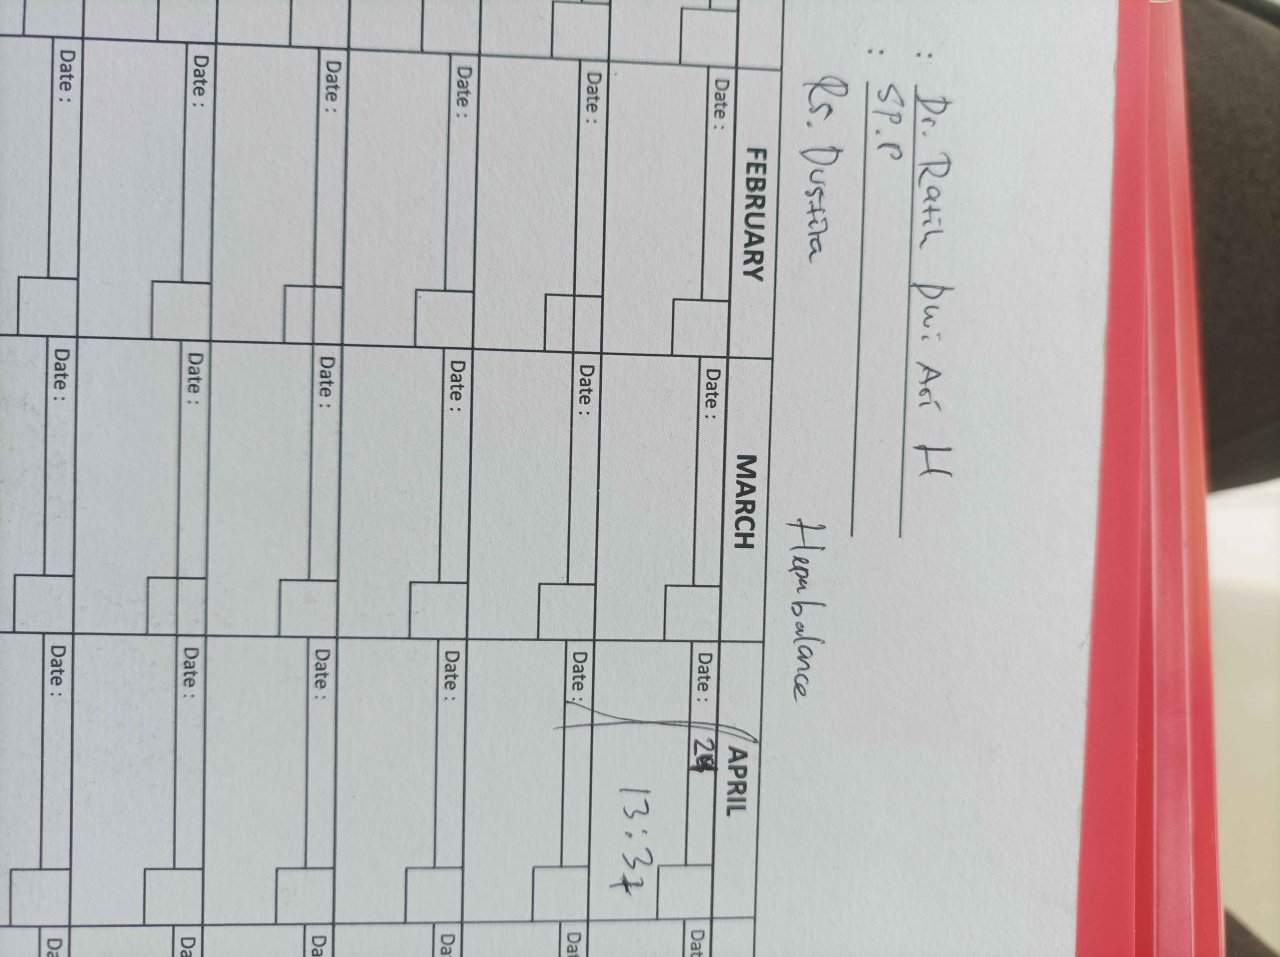 : Dr. Ratih Dwi Ari H
: SP.P
Rs. Dustira Hepabalance
FEBRUARY MARCH APRIL
Date : Date : Date : 24 Dat
13:37
Date : Date : Date : Dat
Date : Date : Date : Da
Date : Date : Date : Da
Date : Date : Date : Da
Date : Date : Date : Da